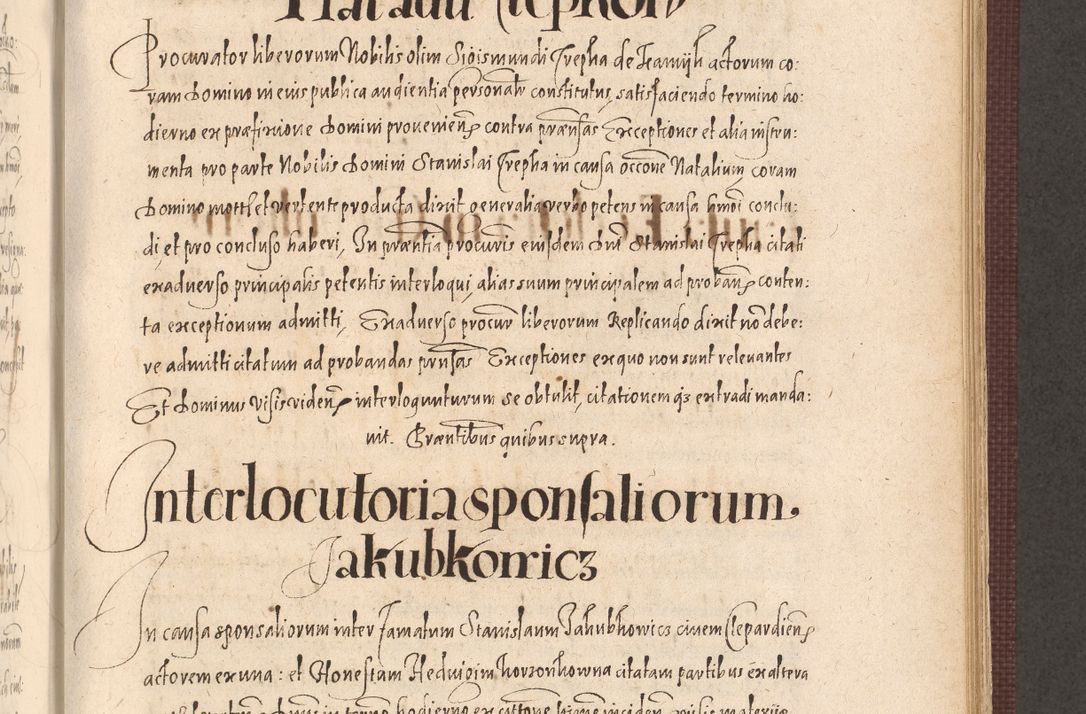 Procurator liberorum Nobilis olim Sigismundi Trepka de actorum co:
ram Domino in eius publica audientia personalr constitutus, satisfaciendo termino ho:
dierno ex præfixione Domini provenien contra prænsas Exceptiones et alia instru:
menta pro parte Nobilis Domini Stanislai Trepka in causa occone Natalium, coram
Domino vertente producta dixit generalia verbo petens in causa hmoi conclu:
di, et pro concluso haberi, In præntia procuris eiusdem Dni Stanislai Trepka citati
ex adverso principalis petentis interloqui, alias suum principalem ad proban conten:
ta exceptionum admitti, Ex adverso procur liberorum Replicando dixit no debe:
re admitti citatum ad probandas prnsas Exceptiones ex quo non sunt relevantes
Et Dominus visis viden interloquuturum se obtulit, citationem qs extradi manda:
vit. Præntibus quibus supra.
Interlocutoria sponsaliorum
Jakubkowicz
In causa sponsaliorum inter famatum Stanislaum Jakubkowicz civem Clepardien
actorem ex una: et Honestam Hedvigim citatam partibus ex altera